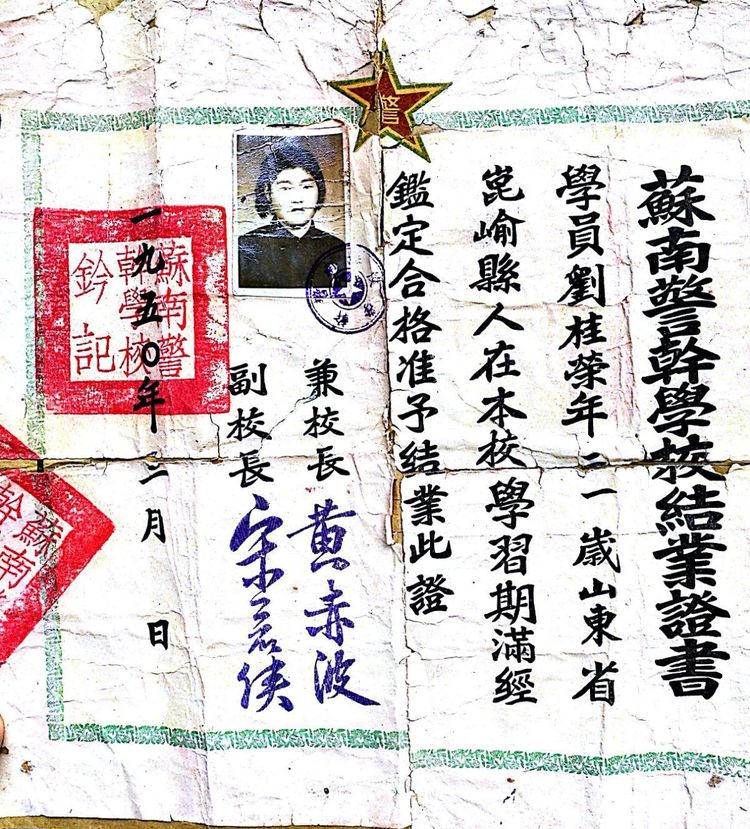 蘇南警幹學校結業證書
學員劉桂榮年二一歲山東省
崑嵛縣人在本校學習期滿經
鑑定合格准予結業此證
兼校長 黃赤波
副校長
一九五〇年三月 日
警
蘇南警
幹學校
鈐記
蘇南
幹